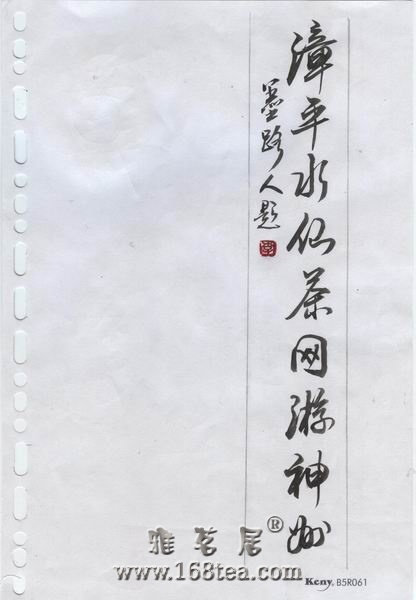 漳平水仙茶网游神州
墨路人题
雅茗居®
www.168tea.com
Keny, B5R061